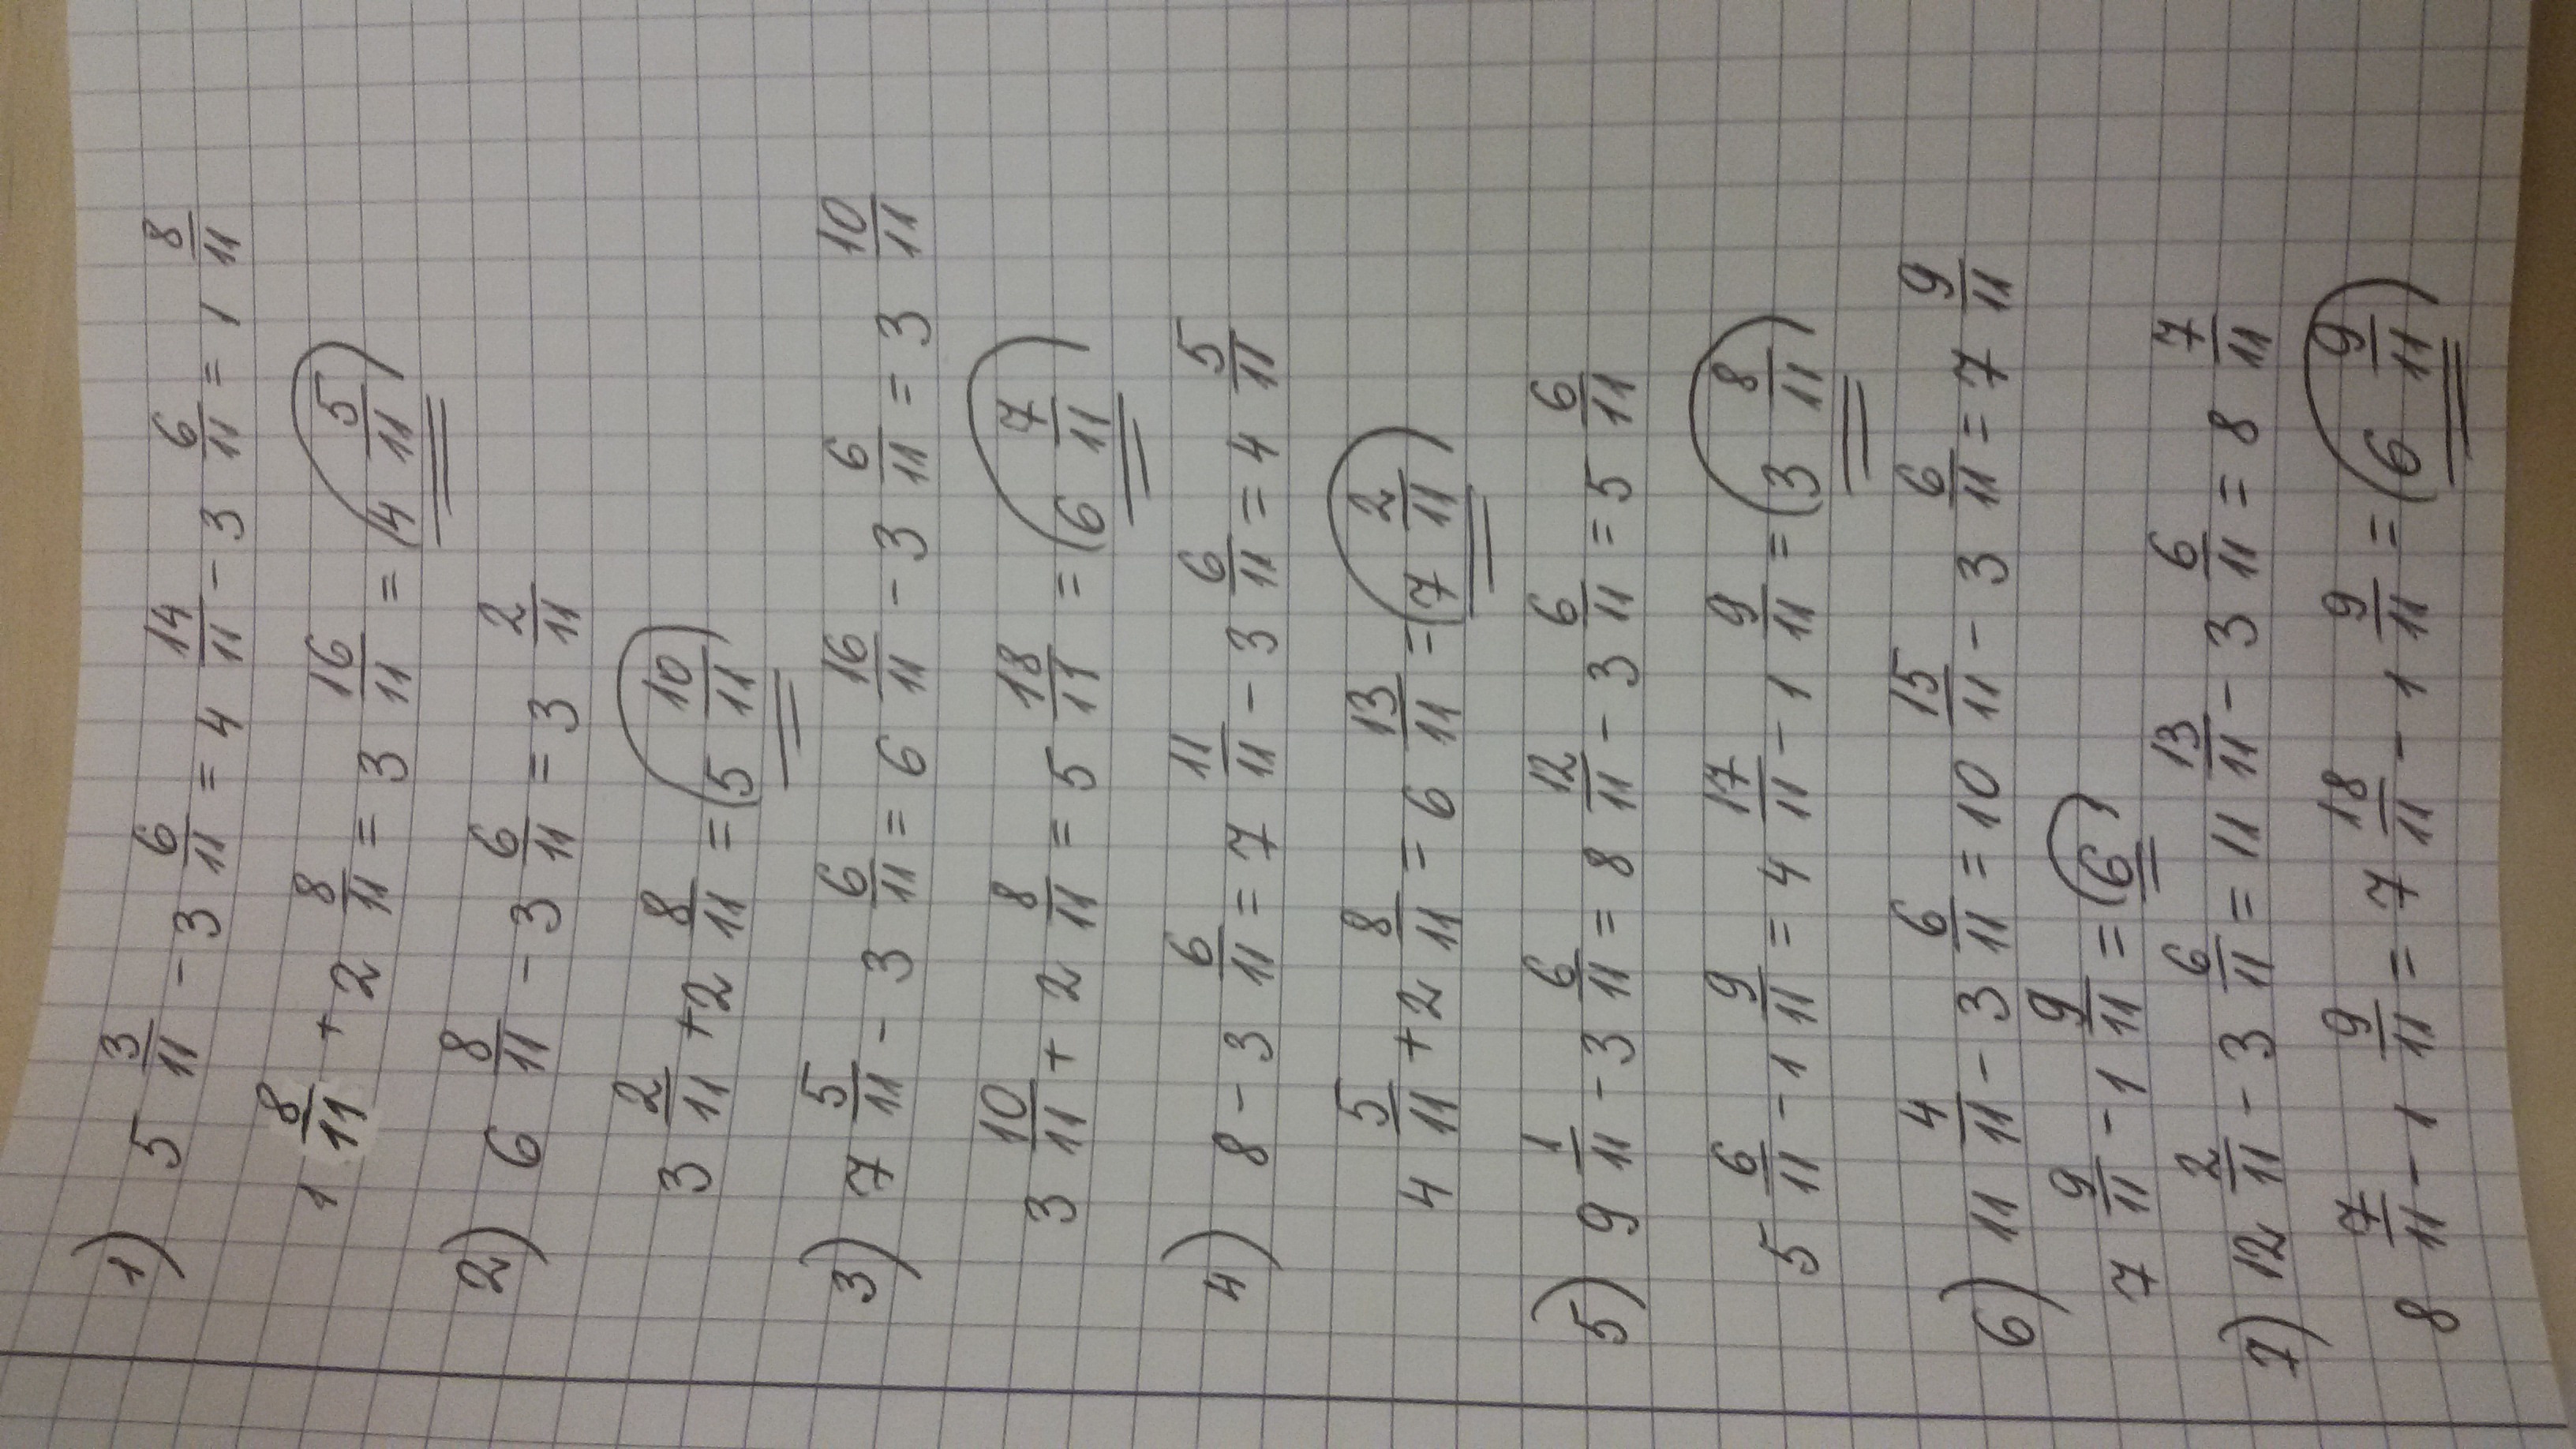 1) 5 3/11 - 3 6/11 = 4 14/11 - 3 6/11 = 1 8/11
1 8/11 + 2 8/11 = 3 16/11 = (4 5/11)
2) 6 8/11 - 3 6/11 = 3 2/11
3 2/11 + 2 8/11 = (5 10/11)
3) 7 5/11 - 3 6/11 = 6 16/11 - 3 6/11 = 3 10/11
3 10/11 + 2 8/11 = 5 18/11 = (6 7/11)
4) 8 - 3 6/11 = 7 11/11 - 3 6/11 = 4 5/11
4 5/11 + 2 8/11 = 6 13/11 = (7 2/11)
5) 9 1/11 - 3 6/11 = 8 12/11 - 3 6/11 = 5 6/11
5 6/11 - 1 9/11 = 4 17/11 - 1 9/11 = (3 8/11)
6) 11 4/11 - 3 6/11 = 10 15/11 - 3 6/11 = 7 9/11
7 9/11 - 1 9/11 = (6)
7) 12 2/11 - 3 6/11 = 11 13/11 - 3 6/11 = 8 7/11
8 7/11 - 1 9/11 = 7 18/11 - 1 9/11 = (6 9/11)